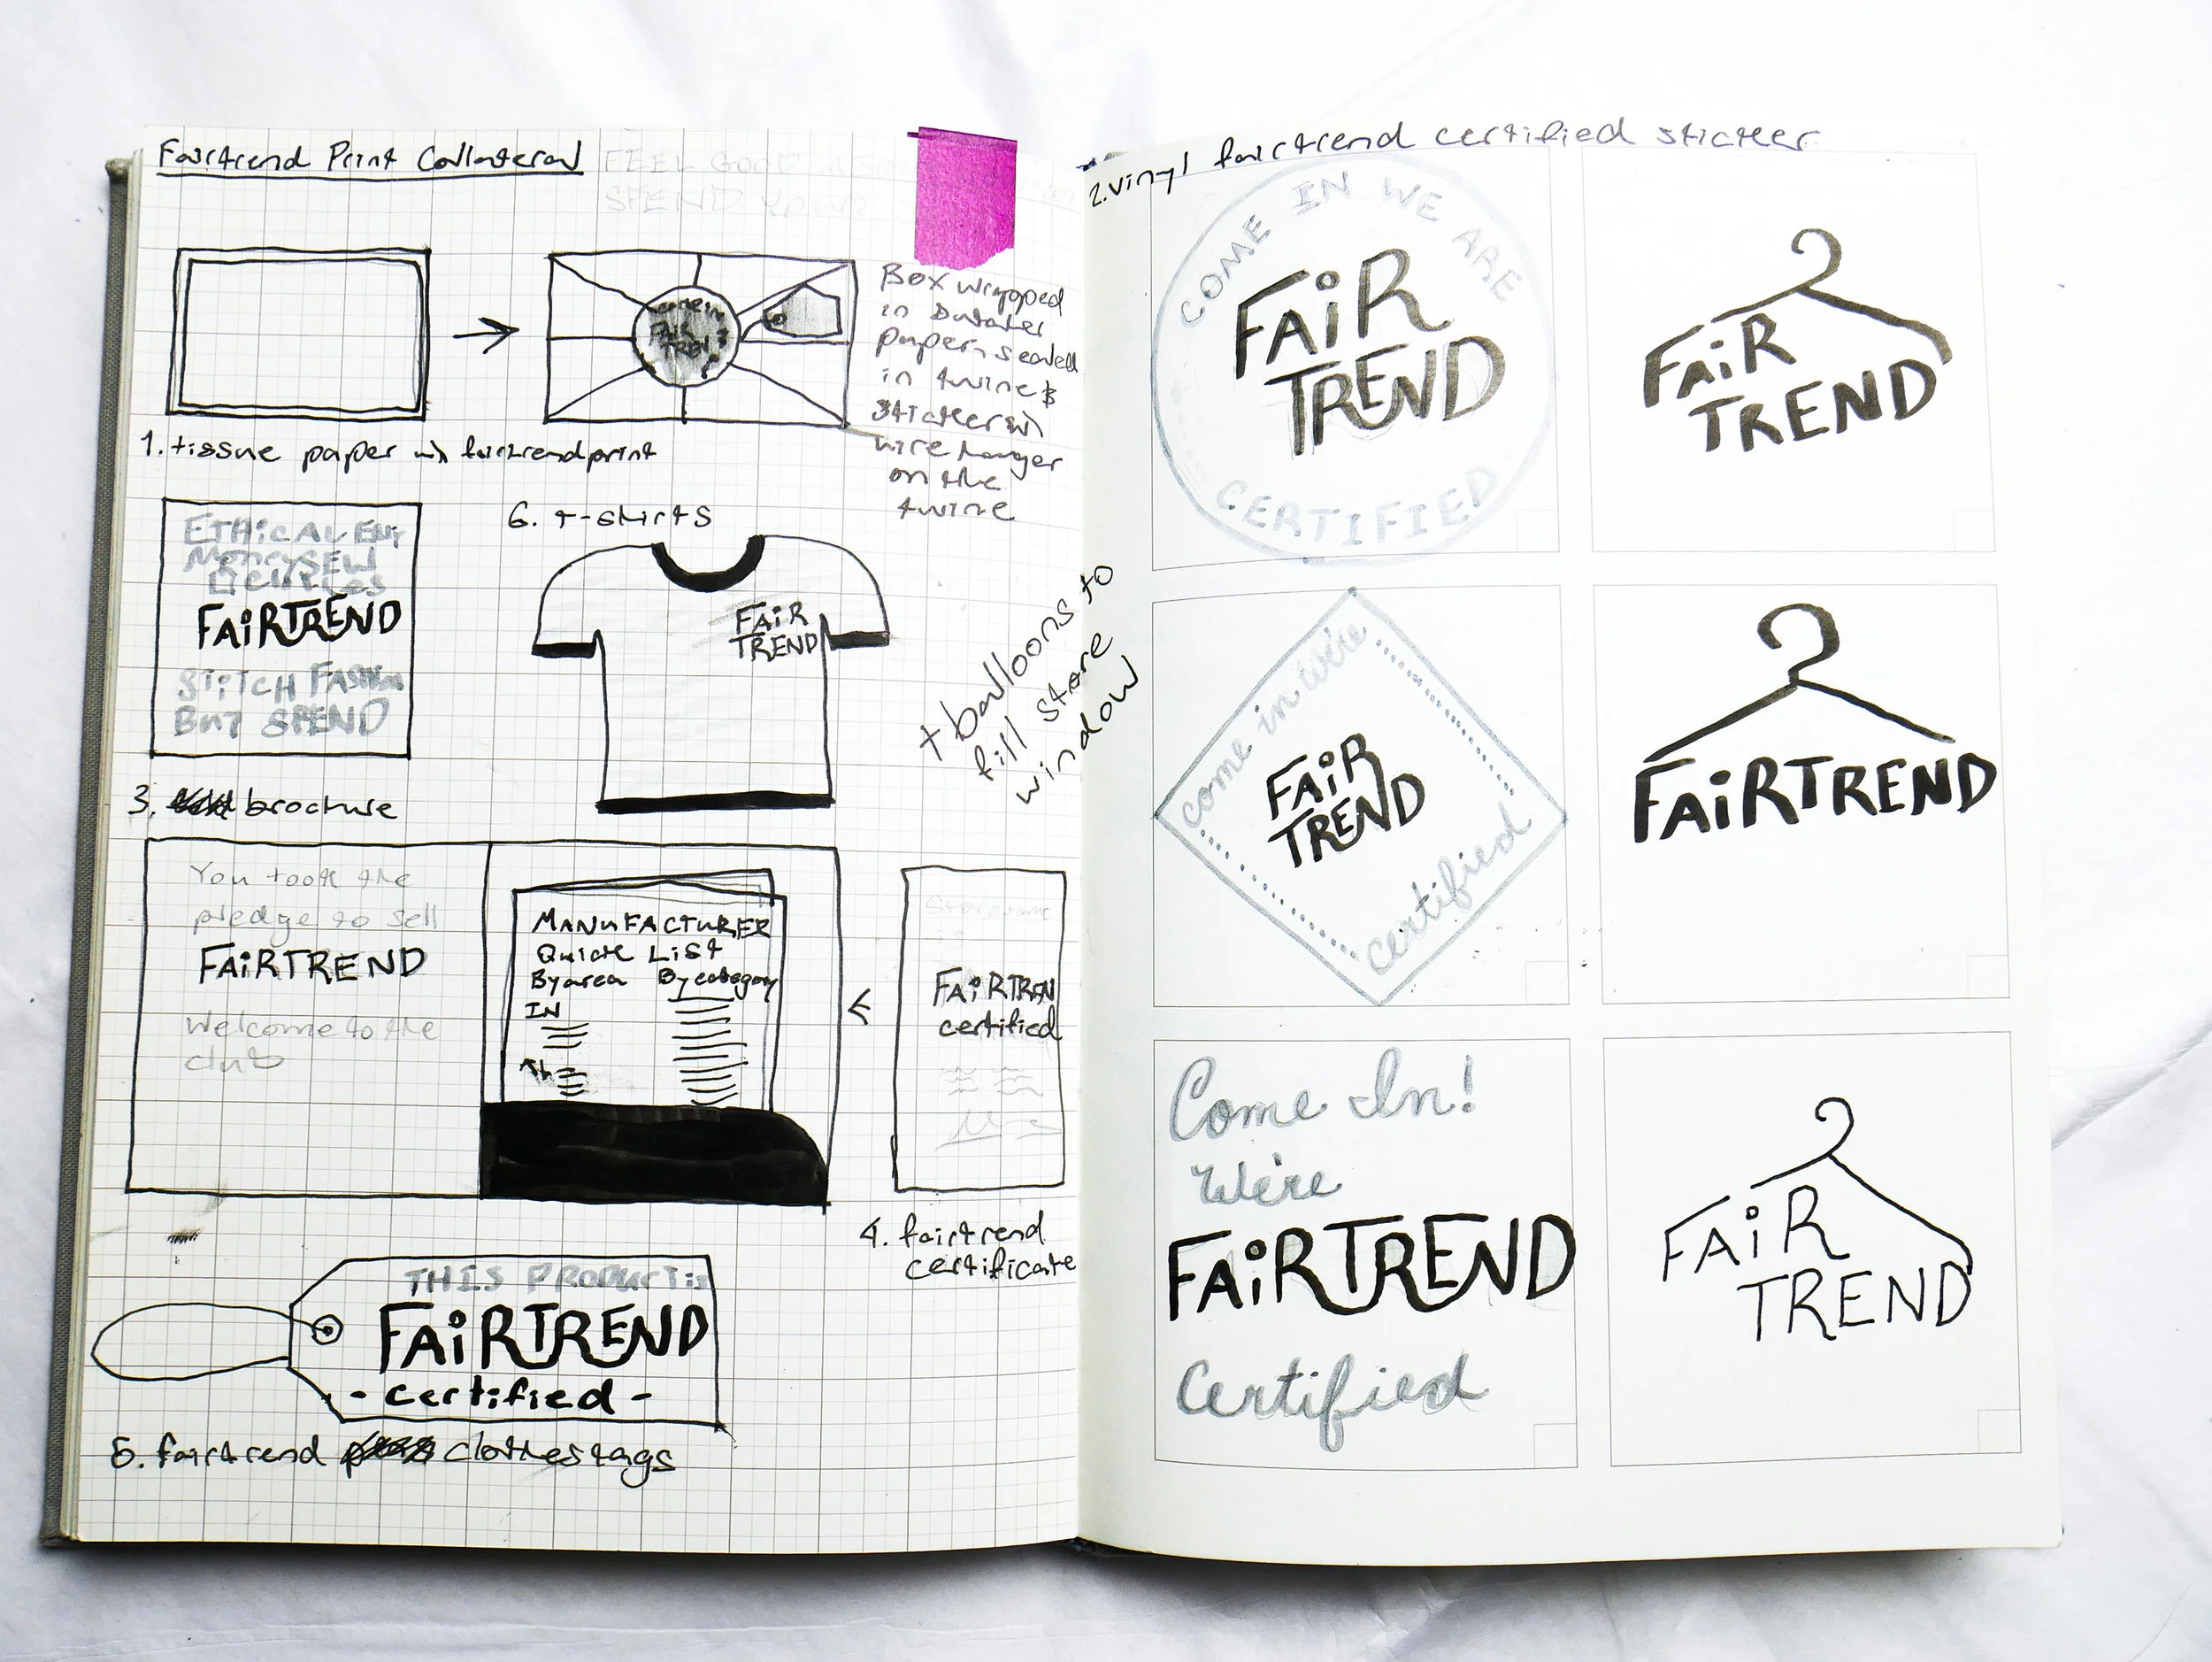 Fairtrend Print Collateral
FEEL GOOD
SPEND your
Box wrapped
in butcher
paper, sealed
in twine &
sticker w/
wire hanger
on the
twine
come in
FAIR
TREND
1. tissue paper w/ fairtrend print
ETHICAL
Money SEW
FAIRTREND
STITCH FASHION
But SPEND
6. t-shirts
FAIR
TREND
+ balloons to
fill store
window
3. brochure
You took the
pledge to sell
FAIRTREND
Welcome to the
club
MANUFACTURER
Quick List
By area By category
IN
FAIRTREN
certified
4. fairtrend
certificate
THIS PRODUCT is
FAIRTREND
- certified -
5. fairtrend clothes tags
2. vinyl fairtrend certified sticker
COME IN WE ARE
FAIR
TREND
CERTIFIED
FAIR
TREND
come in we're
FAIR
TREND
certified
FAIRTREND
Come In!
We're
FAIRTREND
Certified
FAIR
TREND